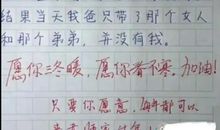 结果当天我爸只带了那个女人
和那个弟弟，并没有我。
愿你三冬暖，愿你春不寒。加油！
只要你愿意，每年都可以